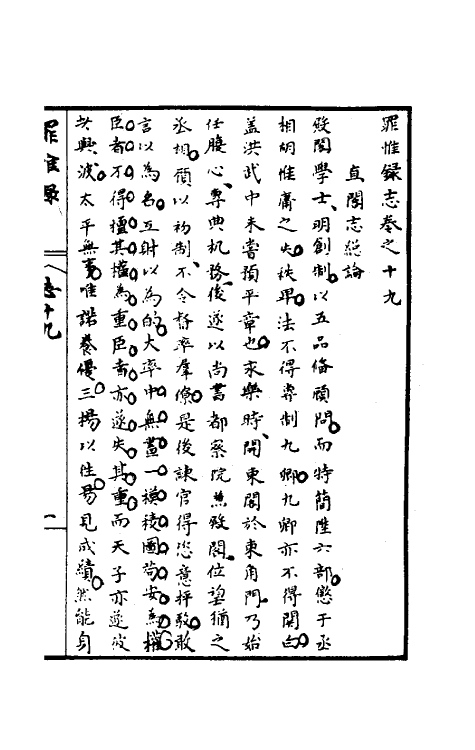 罪惟録志卷之十九
直閣志總論
殿閣學士明創制以五品備顧問而特簡陞六部懲于丞
相胡惟庸之失秩畢法不得專制九卿九卿亦不得關白
蓋洪武中未嘗預平章也永樂時開東閣於東角門乃始
任腹心專典机務後遂以尚書都察院兼殿閣位望猶之
丞相顧以初制不令督率羣僚是後諫官得恣意抨
敢
言以為名互射以為的大率中無畫一模稜圖苟安為權
臣者不得擅其權為重臣者亦遂失其重而天子亦遂波
其興波太平無事唯諾養優三楊以往曷見成績然能身
罪惟錄
志十九
一